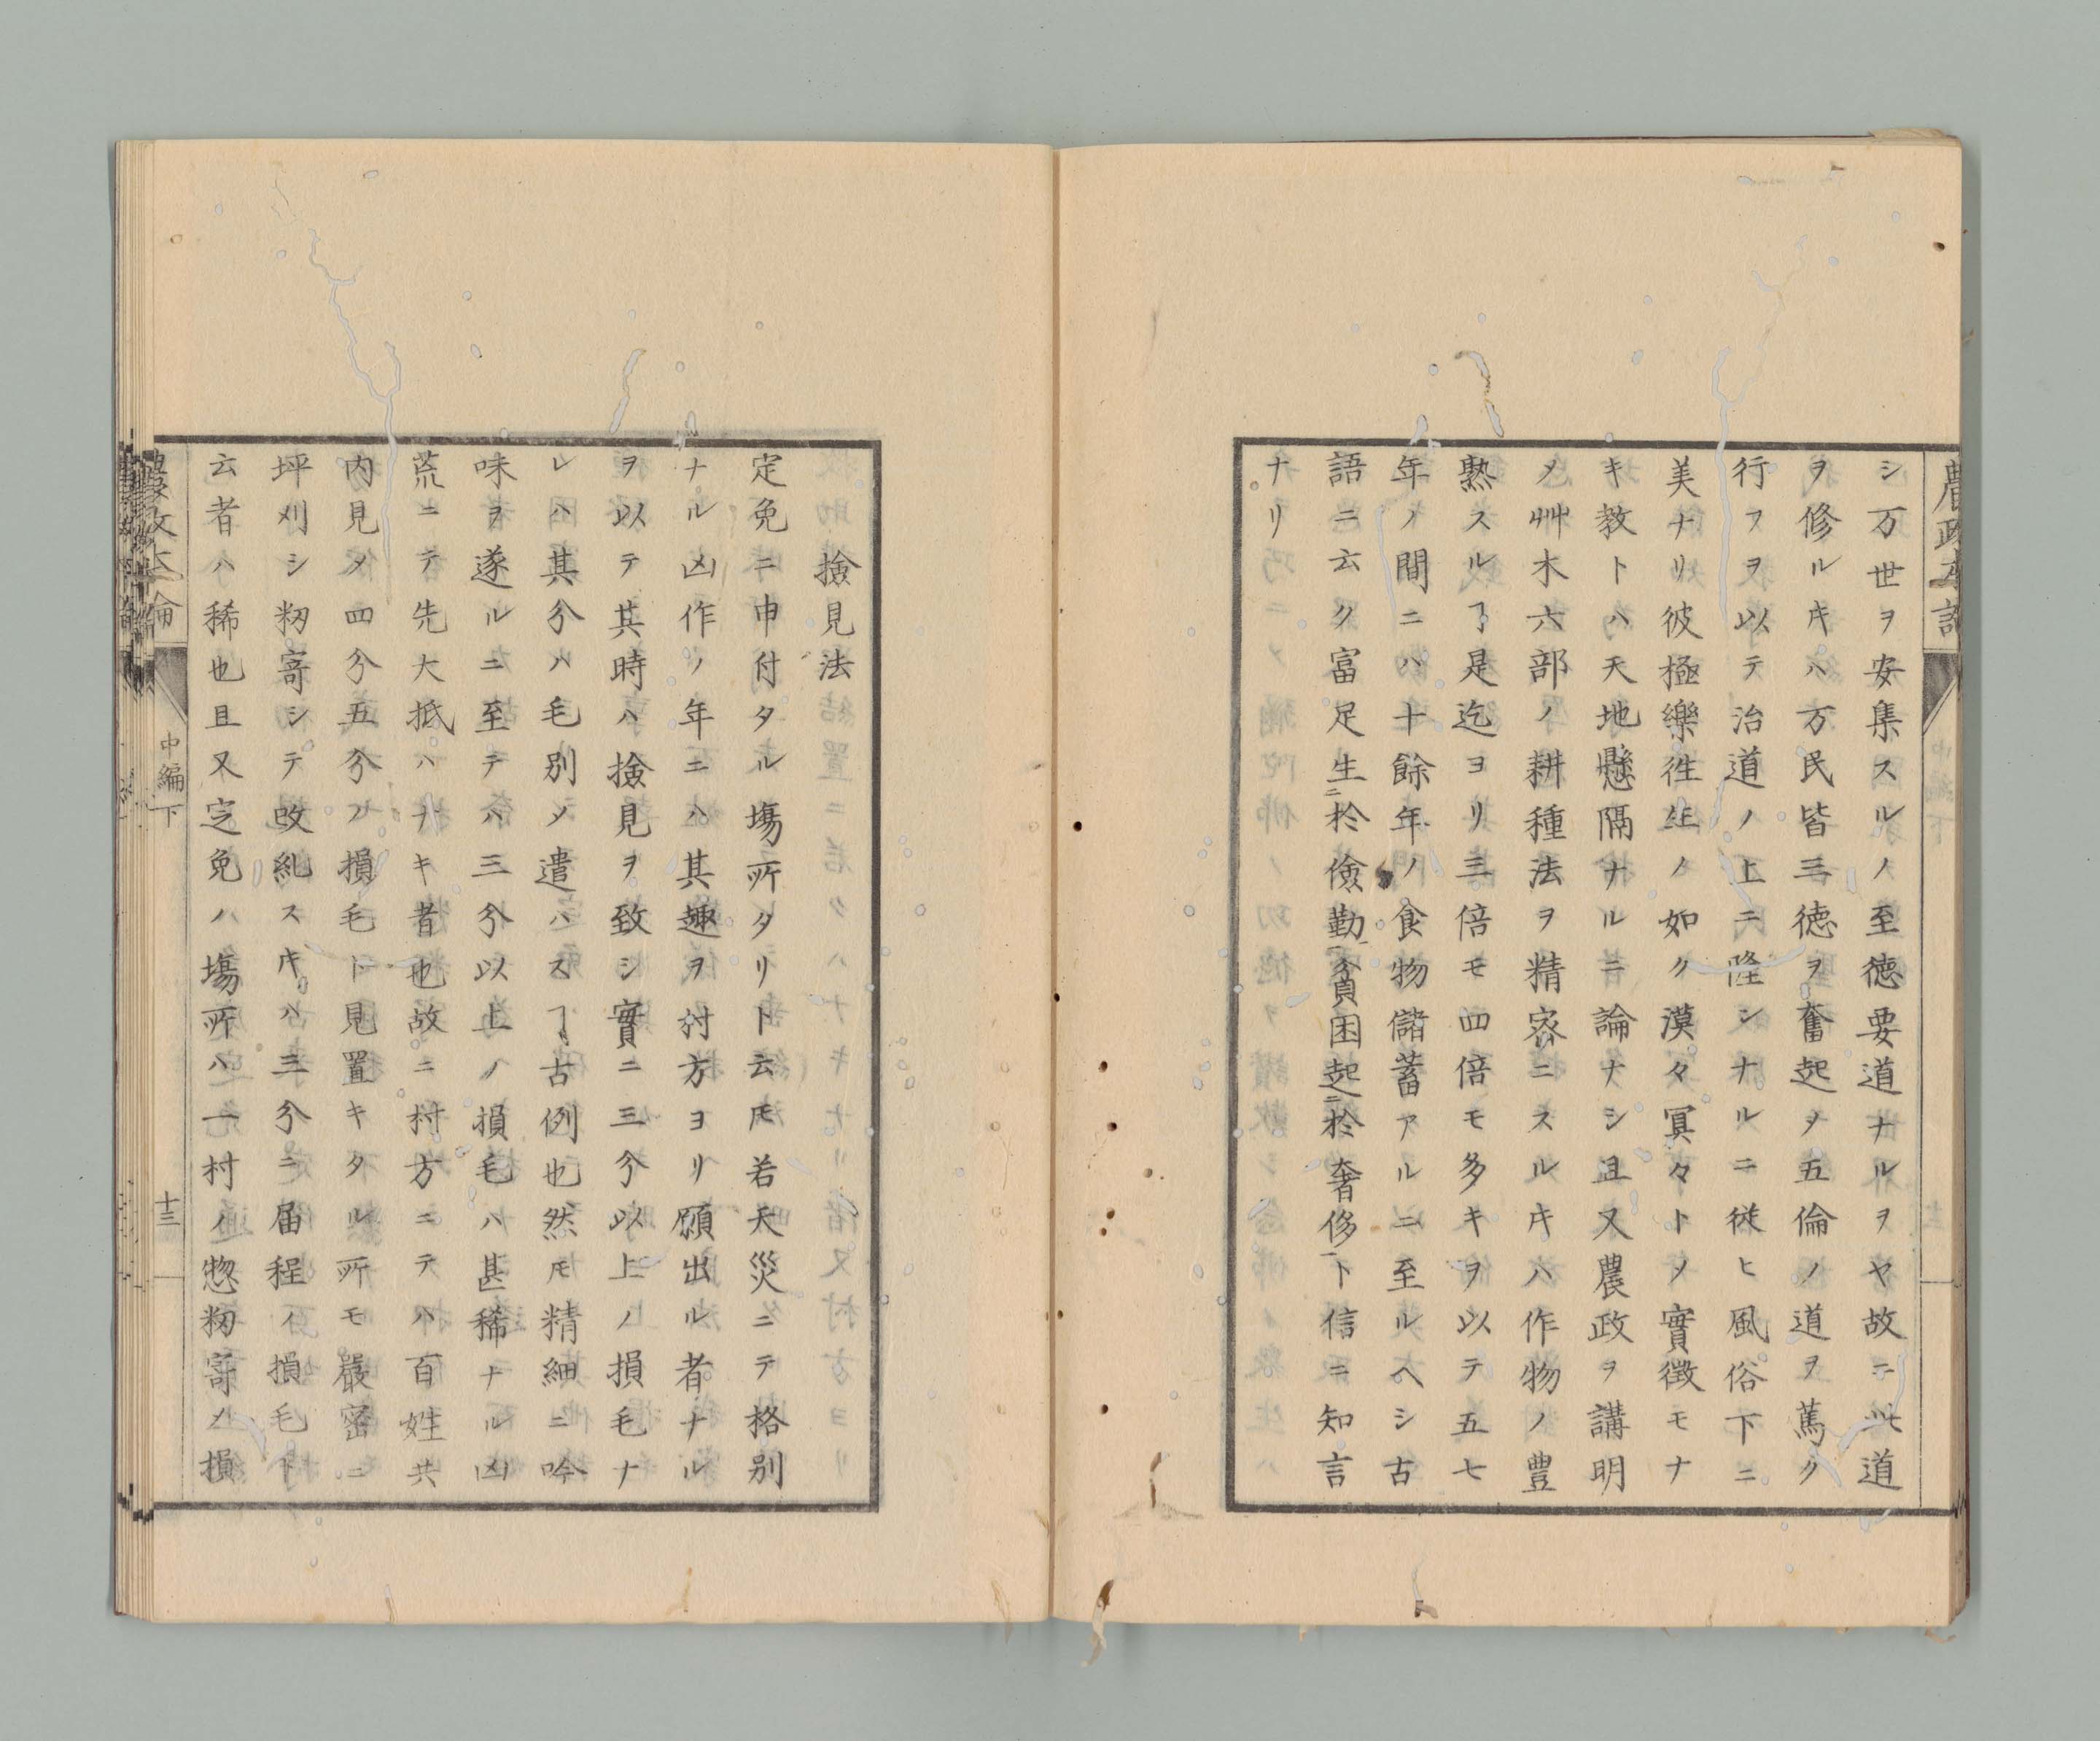 農政本論
シ万世ヲ安集スルノ至徳要道ナルヲヤ故ニ此道
ヲ修ルキハ万民皆三徳ヲ奮起ヲ五倫ノ道ヲ篤ク
行フヲ以テ治道ノ上ニ隆シナルニ従ヒ風俗下ニ
美ナリ彼極樂徃生ノ如ク漠々冥々トノ實徴モナ
キ教トハ天地懸隔ナルニ論ナシ且又農政ヲ講明
メ艸木六部ノ耕種法ヲ精密ニスルキハ作物ノ豊
熟スルヿ是迄ヨリ三倍モ四倍モ多キヲ以テ五七
年ノ間ニハ十餘年ノ食物儲蓄アルニ至ルヘシ古
語ニ云ク富足生二於儉勤一貧困起二於奢侈一ト信ニ知言
ナリ
撿見法
定免ニ申付タル塲所タリト云𪜈若天災ニテ格別
ナル凶作ノ年ニハ其趣ヲ村方ヨリ願出ル者ナル
ヲ以テ其時ハ撿見ヲ致シ實ニ三分以上ノ損毛ナ
レハ其分ハ毛別メ遣ハスヿ古例也然𪜈精細ニ吟
味ヲ遂ルニ至テハ三分以上ノ損毛ハ甚稀ナル凶
荒ニテ先大抵ハナキ者也故ニ村方ニテハ百姓共
内見メ四分五分ノ損毛ト見置キタル所モ嚴密ニ
坪刈シ籾寄シテ改糺スキハ三分ニ届程ノ損毛ト
云者ハ稀也且又定免ノ塲所ハ一村ノ惣籾寄ノ損
農政本論
中編下
十三